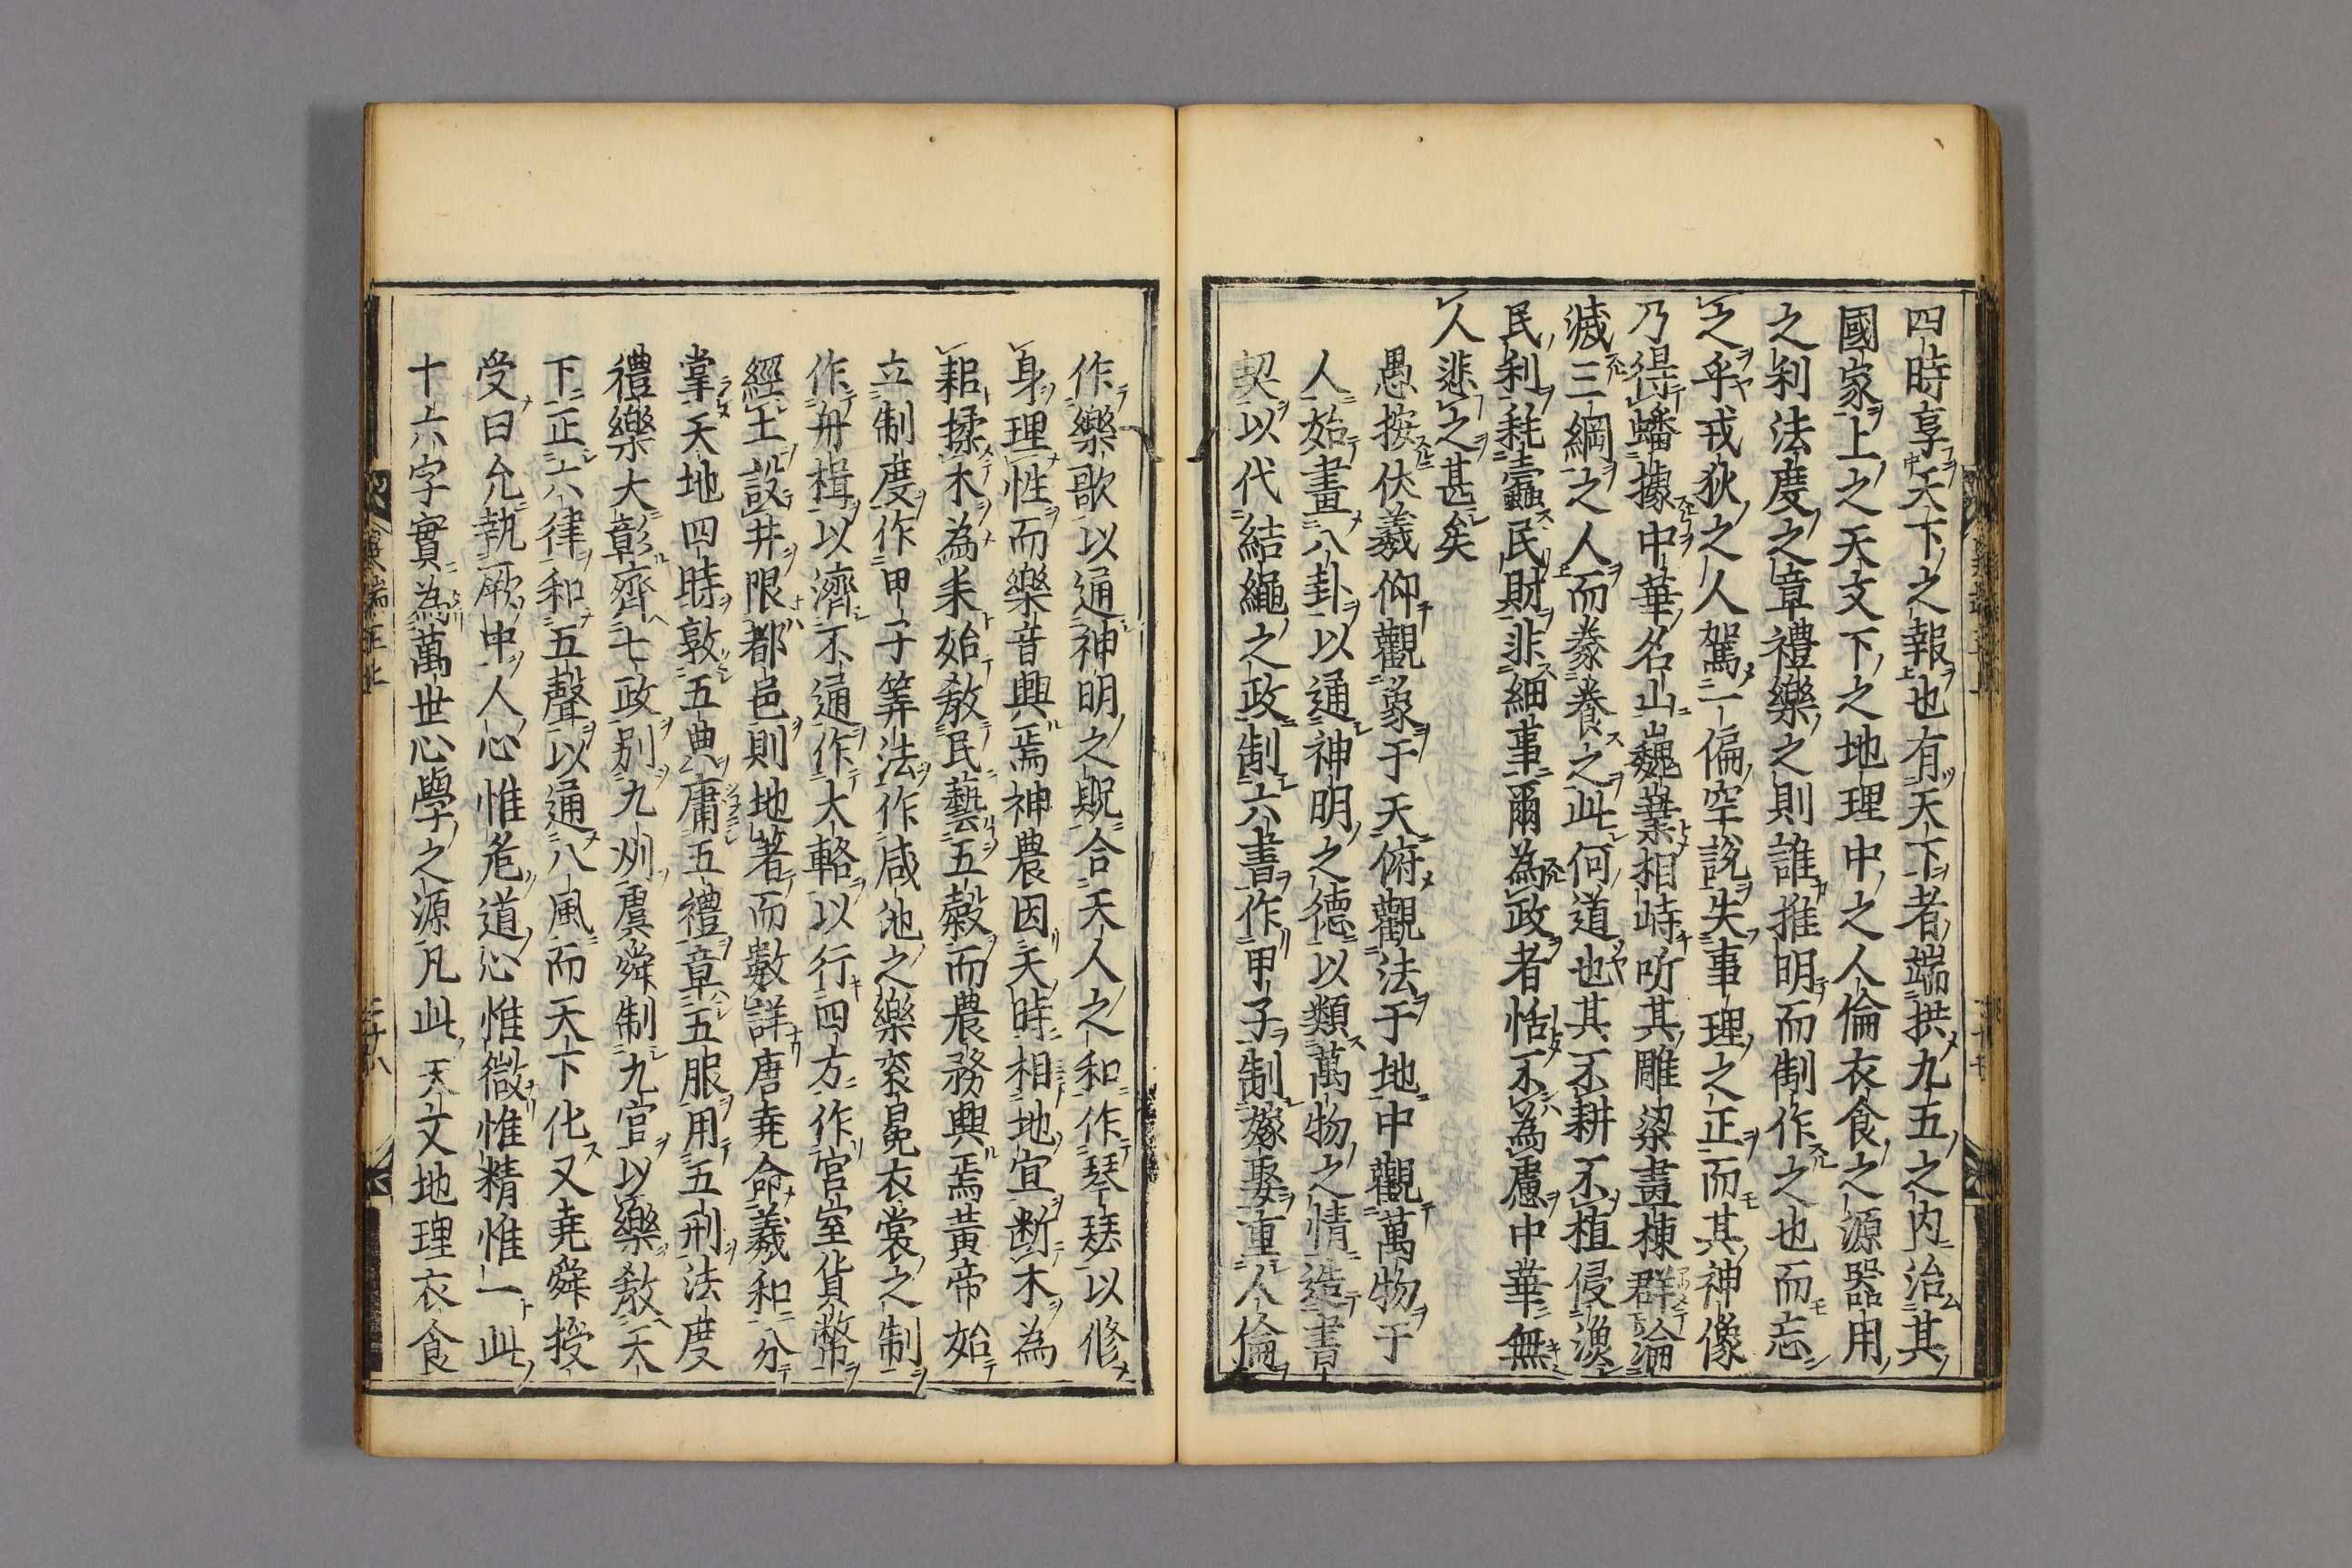 四時享天下之報也有天下者端拱九五之内治其
國家上之天文下之地理中之人倫衣食之源器用
之利法度之章禮樂之則誰推明而制作之也而忘
之乎戎狄之人駕一偏空説失事理之正而其神像
乃得蟠據中華名山巍業相峙所其雕梁畫棟群淪
滅三綱之人而豢養之此何道也其不耕不植侵漁
民利耗蠹民財非細事爾為政者恬不為慮中華無
人悲之甚矣
愚按伏羲仰觀象于天俯觀法于地中觀萬物于
人始畫八卦以通神明之德以類萬物之情造書
契以代結繩之政制六書作甲子制嫁娶重人倫
作樂歌以通神明之貺合天人之和作琴瑟以修
身理性而樂音興焉神農因天時相地宜断木為
耜揉木為耒始教民藝五穀而農務興焉黄帝始
立制度作甲子筭法作咸池之樂衮冕衣裳之制
作舟楫以濟不通作大輅以行四方作宮室貨幣
經土設井限都邑則地著而數詳唐堯命羲和分
掌天地四時敦五典庸五禮章五服用五刑法度
禮樂大彰齊七政别九州虞舜制九官以樂教天
下正六律和五聲以通八風而天下化又堯舜授
受曰允執厥中人心惟危道心惟微惟精惟一此
十六字實為萬世心學之源凡此天文地理衣食